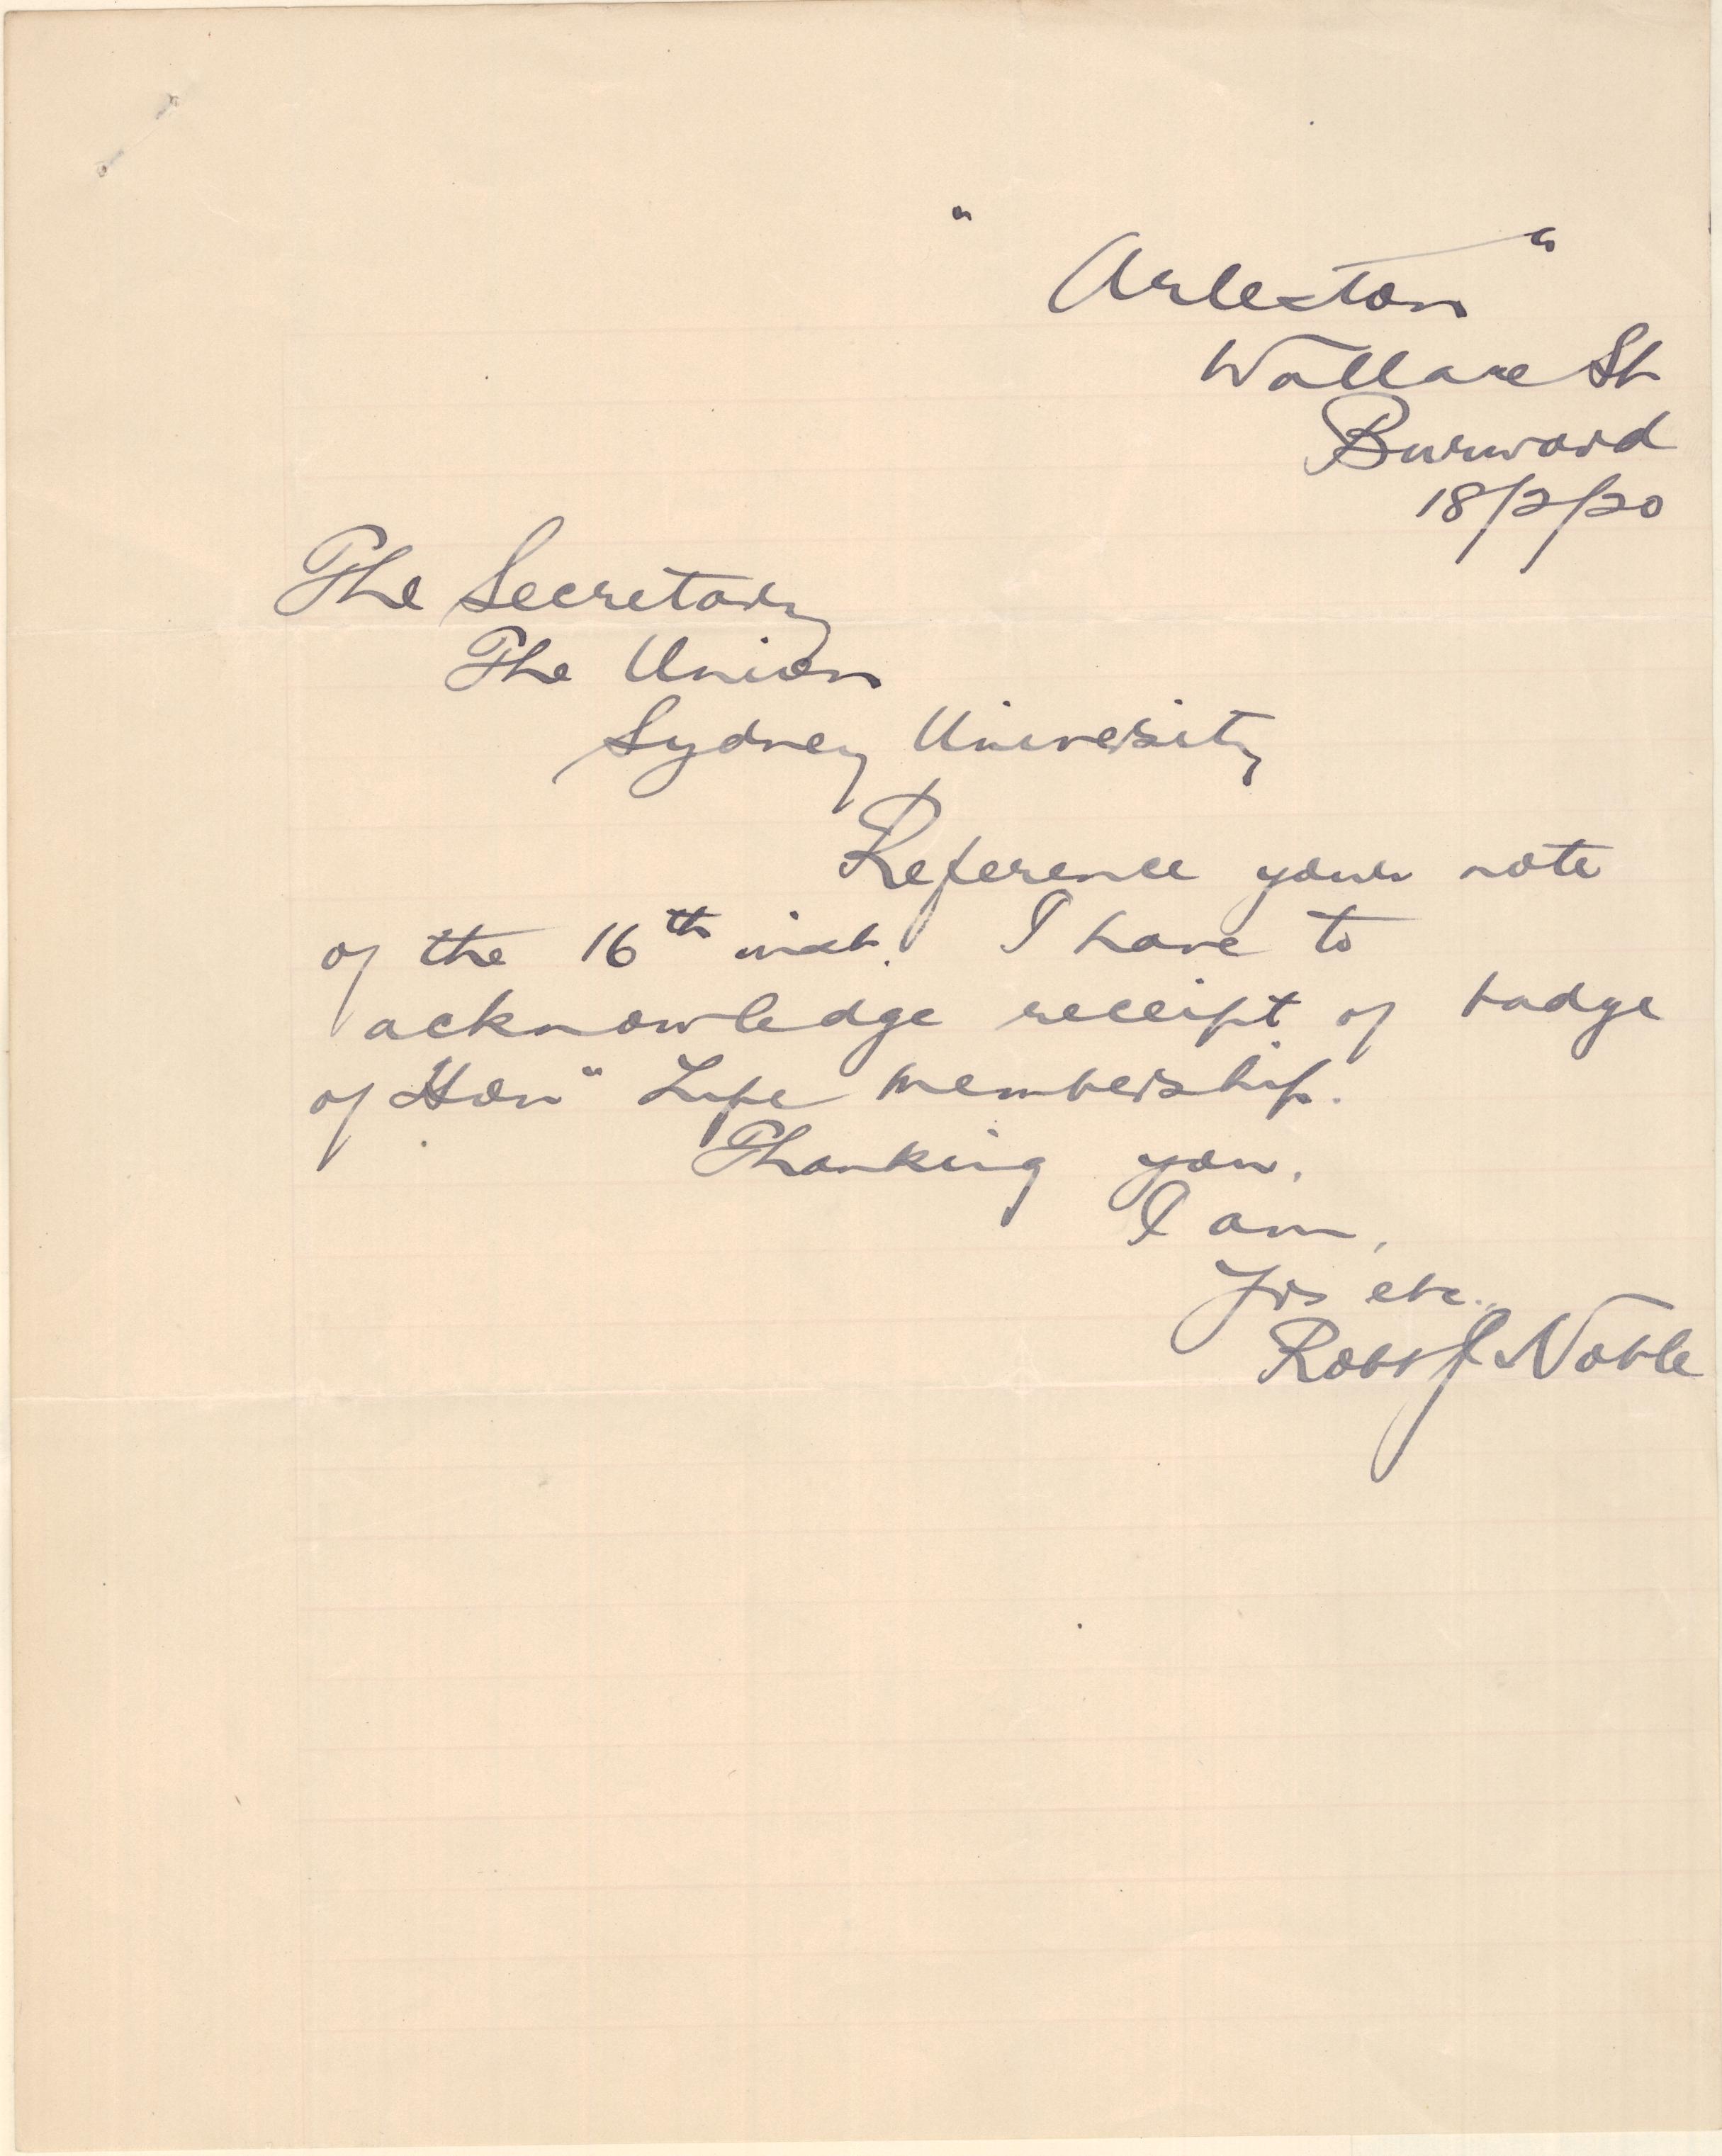 " Arleston "
Wallace St
Burwood
18/2/20
The Secretary
The Union
Sydney University
Reference your note
of the 16th inst. I have to
acknowledge receipt of badge
of Hon" Life membership.
Thanking you,
I am,
Yrs etc.,
Robt J Noble